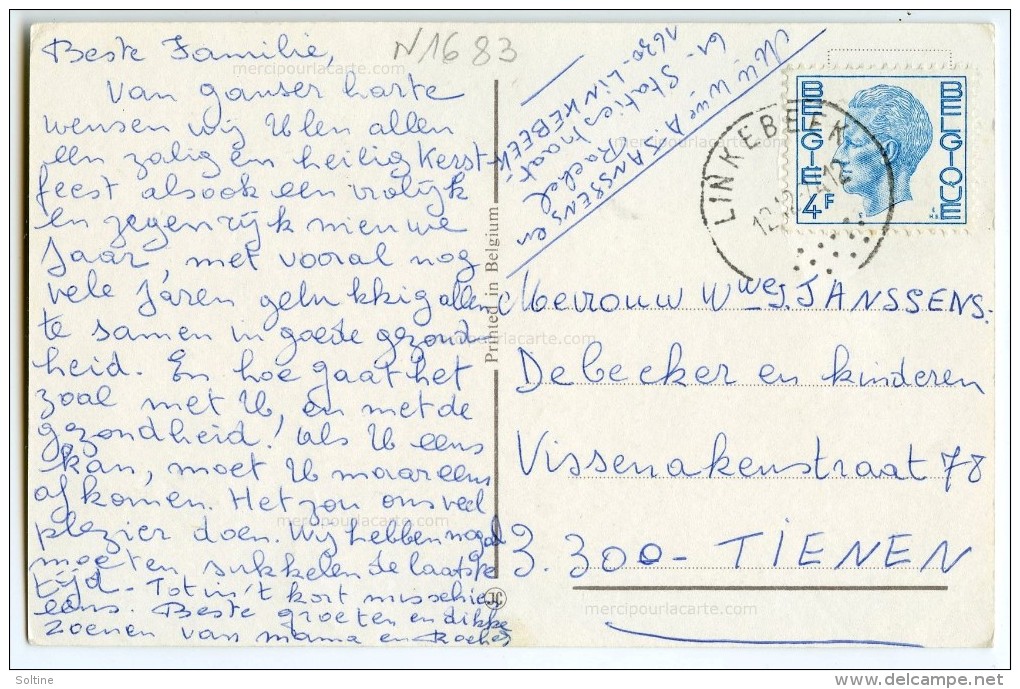 N1683
Beste Familie,
Van ganser harte
wensen wij Ulen allen
een zalig en heilig Kerst-
feest alsook een vrolijk
en zegenrijk nieuwe
Jaar, met vooral nog
vele Jaren gelukkig allen
te samen in goede gezond-
heid. En hoe gaat het
zoal met U, en met de
gezondheid! als U eens
kan, moet U maar eens
af komen. Het zou ons veel
plezier doen. Wij hebben nogal
moeten sukkelen de laatste
tijd - Tot in't kort misschien
eens. Beste groeten en dikke
zoenen van mama en
Printed in Belgium
JC
Mw Wwe A. JANSSENS en
Rachel
61 - Statiestraat
1630 - LINKEBEEK
BELGIE
BELGIQUE
4F
LINKEBEEK
Mevrouw Wwe J. JANSSENS.
Debecker en kinderen
Vissenakenstraat 78
3.300 - TIENEN
mercipourlacarte.com
mercipourlacarte.com
mercipourlacarte.com
mercipourlacarte.com
mercipourlacarte.com
mercipourlacarte.com
mercipourlacarte.com
Soltine
delcampe.net